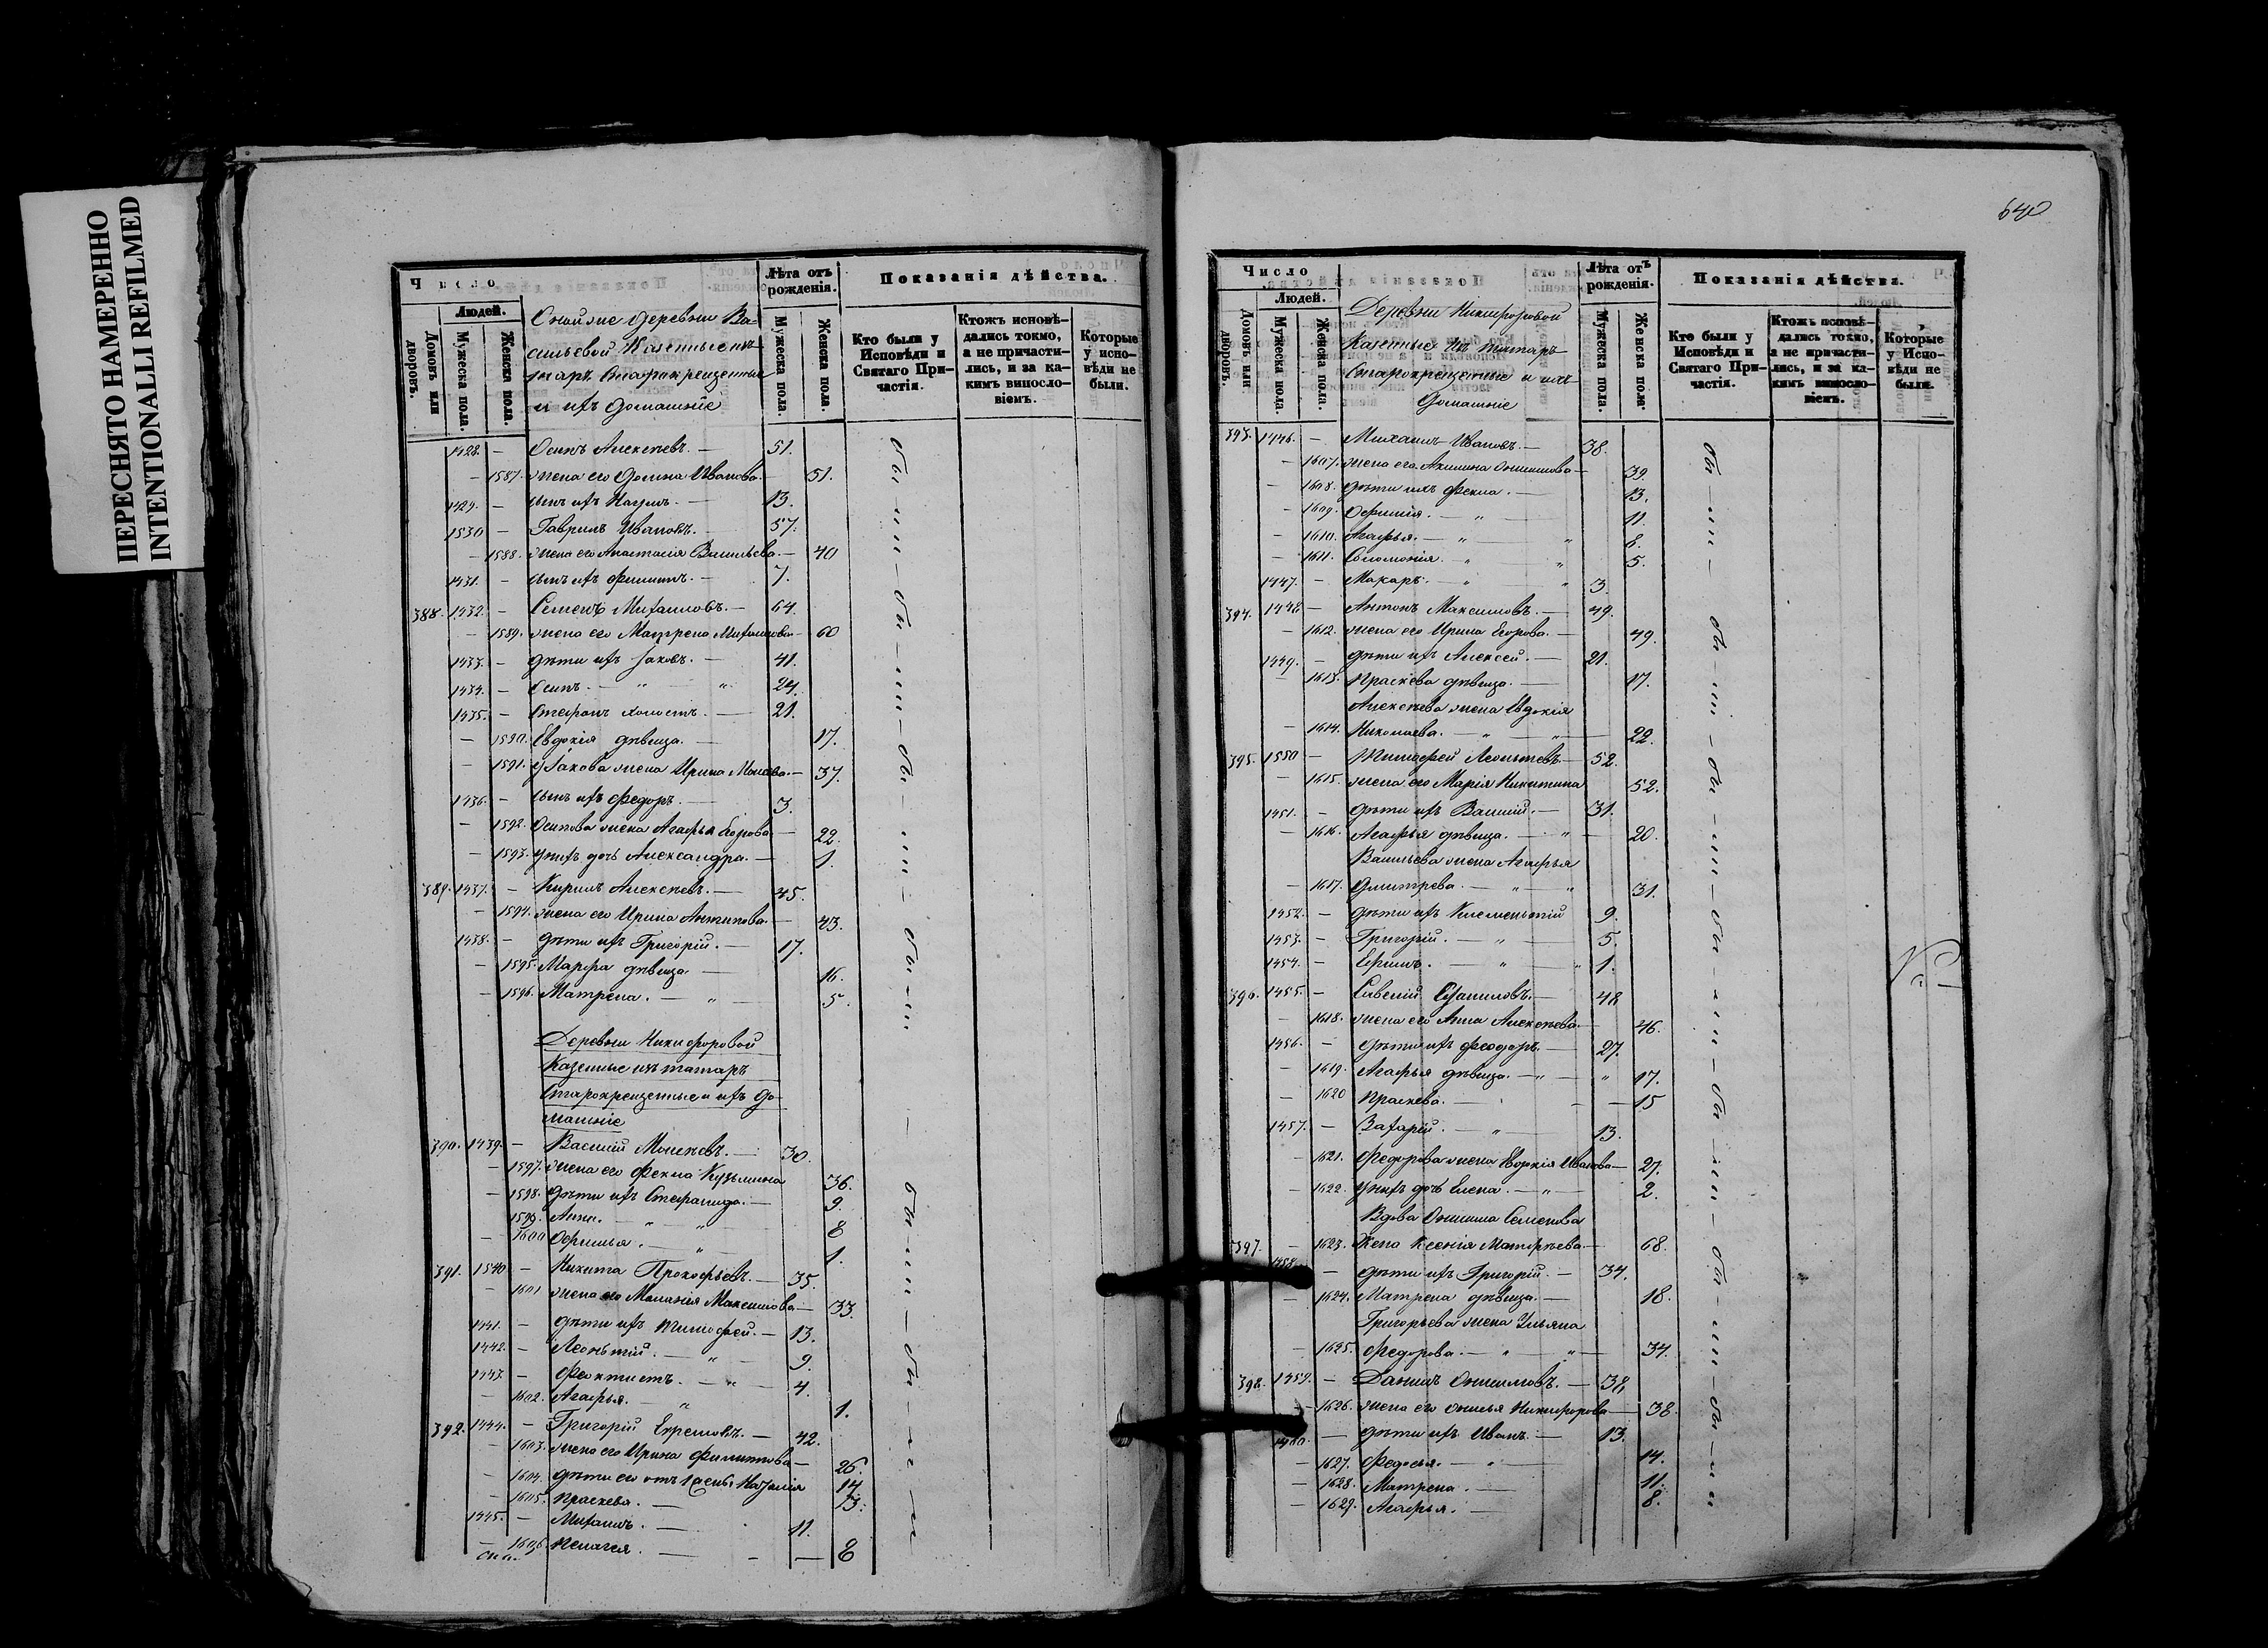 ПЕРЕСНЯТО НАМЕРЕННО
INTENTIONALLI REFILMED
Число
Людей.
Домовъ или дворовъ.
Мужеска пола.
Женска пола.
деревни Ва-
сильевой Казенные
Старокрещенные
и ихъ домашніе
Лѣта отъ рожденія.
Мужеска пола.
Женска пола.
Показанія дѣйства.
Кто были у Исповѣди и Святаго Причастія.
Ктожъ исповѣдались токмо, а не причастились, и за какимъ винословіемъ.
Которые у исповѣди не были.
1428. — Осипъ Алексѣевъ. — 51.
— 1587. жена его Домна Иванова. 51.
1429. — сынъ ихъ 13.
1530 — Гаврилъ Ивановъ. — 57.
— 1588. жена его Анастасія Васильева. — 40
1431. — сынъ ихъ Филиппъ. — 7.
388. 1432. — Семенъ Михаиловъ. — 64.
— 1589. жена его Матрена Михаилова — 60
1433. — дѣти ихъ Іаковъ. — 41.
1434. — Осипъ. — " " 24.
1435. — Стефанъ холостъ. — 21.
— 1590. Евдокія дѣвица. — 17.
— 1591. Іакова жена Ирина — 37.
1436. — сынъ ихъ Федоръ. — 3.
— 1592. Осипова жена Агафья Егорова — 22.
— 1593. у нихъ дочь Александра. — 1.
389. 1437. — Кирилъ Алексѣевъ. — 45.
— 1594. жена его Ирина Антипова. — 43.
1438. — дѣти ихъ Григорій. — 17.
— 1595. Марфа дѣвица. — 16.
— 1596. Матрена. — " — 5.
Деревни Никифоровой
Казенные изъ татаръ
Старокрещенные и ихъ до-
машніе
390. 1439. — Василій Моисѣевъ. — 30.
— 1597. жена его Фекла Кузьмина 36.
— 1598. дѣти ихъ Стефанида. — 9.
1599. Анна. — " " 8
— 1600 Офимья. — " 1.
391. 1540 — Никита Прокофьевъ. — 35.
— 1601 жена его Меланія Максимова — 33.
1441. — дѣти ихъ Тимофей. — 13.
1442. — Леонтій. — " — 9.
1443. — Феоктистъ. — " — 4.
— 1602. Агафья. — " 1.
392. 1444. — Григорій Ефремовъ. — 42.
— 1603. жена его Ирина Филиппова — 26.
— 1604. дѣти его отъ 1 жены Наталія 14
— 1605. Праскева. — 13.
1445. — Михаилъ. — 11.
— 1606 Пелагея. — — — 8
640
Число
Людей.
Домовъ или дворовъ.
Мужеска пола.
Женска пола.
Деревни Никифоровой
Казенные изъ татаръ
Старокрещенные и ихъ
домашніе
Лѣта отъ рожденія.
Мужеска пола.
Женска пола.
Показанія дѣйства.
Кто были у Исповѣди и Святаго Причастія.
Ктожъ исповѣдались токмо, а не причастились, и за какимъ винословіемъ.
Которые у Исповѣди не были.
393. 1446. — Михаилъ Ивановъ. — 38.
— 1607. жена его Акилина Онисимова — 39.
— 1608. дѣти ихъ Фекла. — 13.
— 1609. Офимія. — " — 11.
— 1610. Агафья. — " " 8.
— 1611. Соломонія. " " 5.
1447. — Макаръ. — " " 3
394. 1448 — Антонъ Максимовъ. — 49.
— 1612. жена его Ирина Егорова. — 49.
1449. — дѣти ихъ Алексей. — 21.
1613. Праскева дѣвица. — 17.
Алексѣева жена Евдокія
— 1614. Николаева. — " — " — 22.
395. 1550 — Тимофей Леонтьевъ — 52.
— 1615. жена его Марія Никитина 52.
1451. — дѣти ихъ Василій. — 31.
— 1616. Агафья дѣвица. — " — 20.
Васильева жена Агафья
— 1617. Дмитрева. — " — " 31.
1452. — дѣти ихъ Клементій 9.
1453. — Григорій. — " — 5.
1454. — Ефимъ. — " " 1.
396. 1455. — Евсевій — 48
— 1618. жена его Анна Алексѣева — 46.
1456. — дѣти ихъ Феодоръ. — 27.
— 1619. Агафья дѣвица. — " — " 17.
— 1620 Праскева. — 15
1457. — Захарій. — " — 13.
— 1621. Федорова жена Евдокія Иванова — 27.
— 1622. у нихъ дочь Елена. — " — 2.
Вдова Онисима Семенова
397. — 1623. Жена Ксенія Матфѣева — 68.
1458. — дѣти ихъ Григорій. — 34.
— 1624. Матрена дѣвица. — 18.
Григорьева жена Ульяна
— 1625. Федорова. — " — " — 34.
398. 1459. — Данилъ Онисимовъ. — 38.
— 1626. жена его Никифорова — 38.
1460. — дѣти ихъ Иванъ. — 13.
— 1627. Федосья. — " 14.
— 1628. Матрена. — 11.
— 1629. Агафья. — 8.